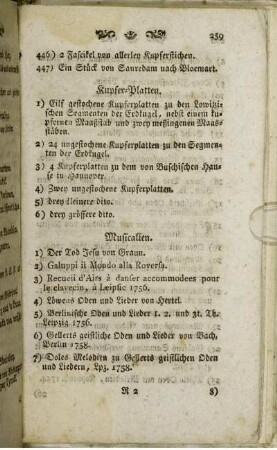 259
446) 2 Fascikel von allerley Kupferstichen.
447) Ein Stück von Sanredam nach Bloemart.
Kupfer-Platten.
1) Eilf gestochene Kupferplatten zu den Lowizi-
schen Segmenten der Erdkugel, nebst einem ku-
pfernen Maaßstab und zwey messingenen Maas-
stäben.
2) 24 ungestochene Kupferplatten zu den Segmen-
ten der Erdkugel.
3) 4 Kupferplatten zu dem von Buschischen Hau-
se in Hannover.
4) Zwey ungestochene Kupferplatten.
5) drey kleinere dito.
6) drey grössere dito.
Musicalien.
1) Der Tod Jesu von Graun.
2) Galuppi il Mondo alla Roversa.
3) Recueil d'Airs à danser accommodees pour
le clavecin, à Læiplic 1756.
4) Löwens Oden und Lieder von Hertel.
5) Berlinische Oden und Lieder 1. 2. und 3t. Th.
Leipzig 1756.
6) Gellerts geistliche Oden und Lieder von Bach,
Berlin 1758.
7) Doles Melodien zu Gellerts geistlichen Oden
und Liedern, Lpz. 1758.
R 2
8)